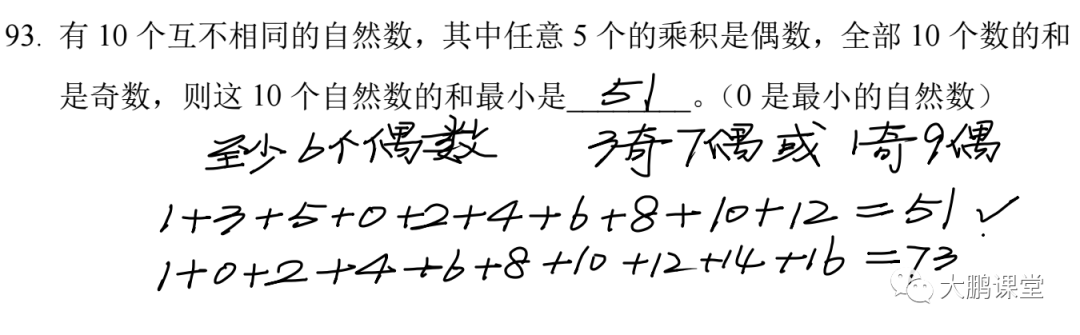 93. 有 10 个互不相同的自然数，其中任意 5 个的乘积是偶数，全部 10 个数的和
是奇数，则这 10 个自然数的和最小是 51 。（0 是最小的自然数）
至少6个偶数 3奇7偶或 1奇9偶
1+3+5+0+2+4+6+8+10+12=51✓
1+0+2+4+6+8+10+12+14+16=73
大鹏课堂